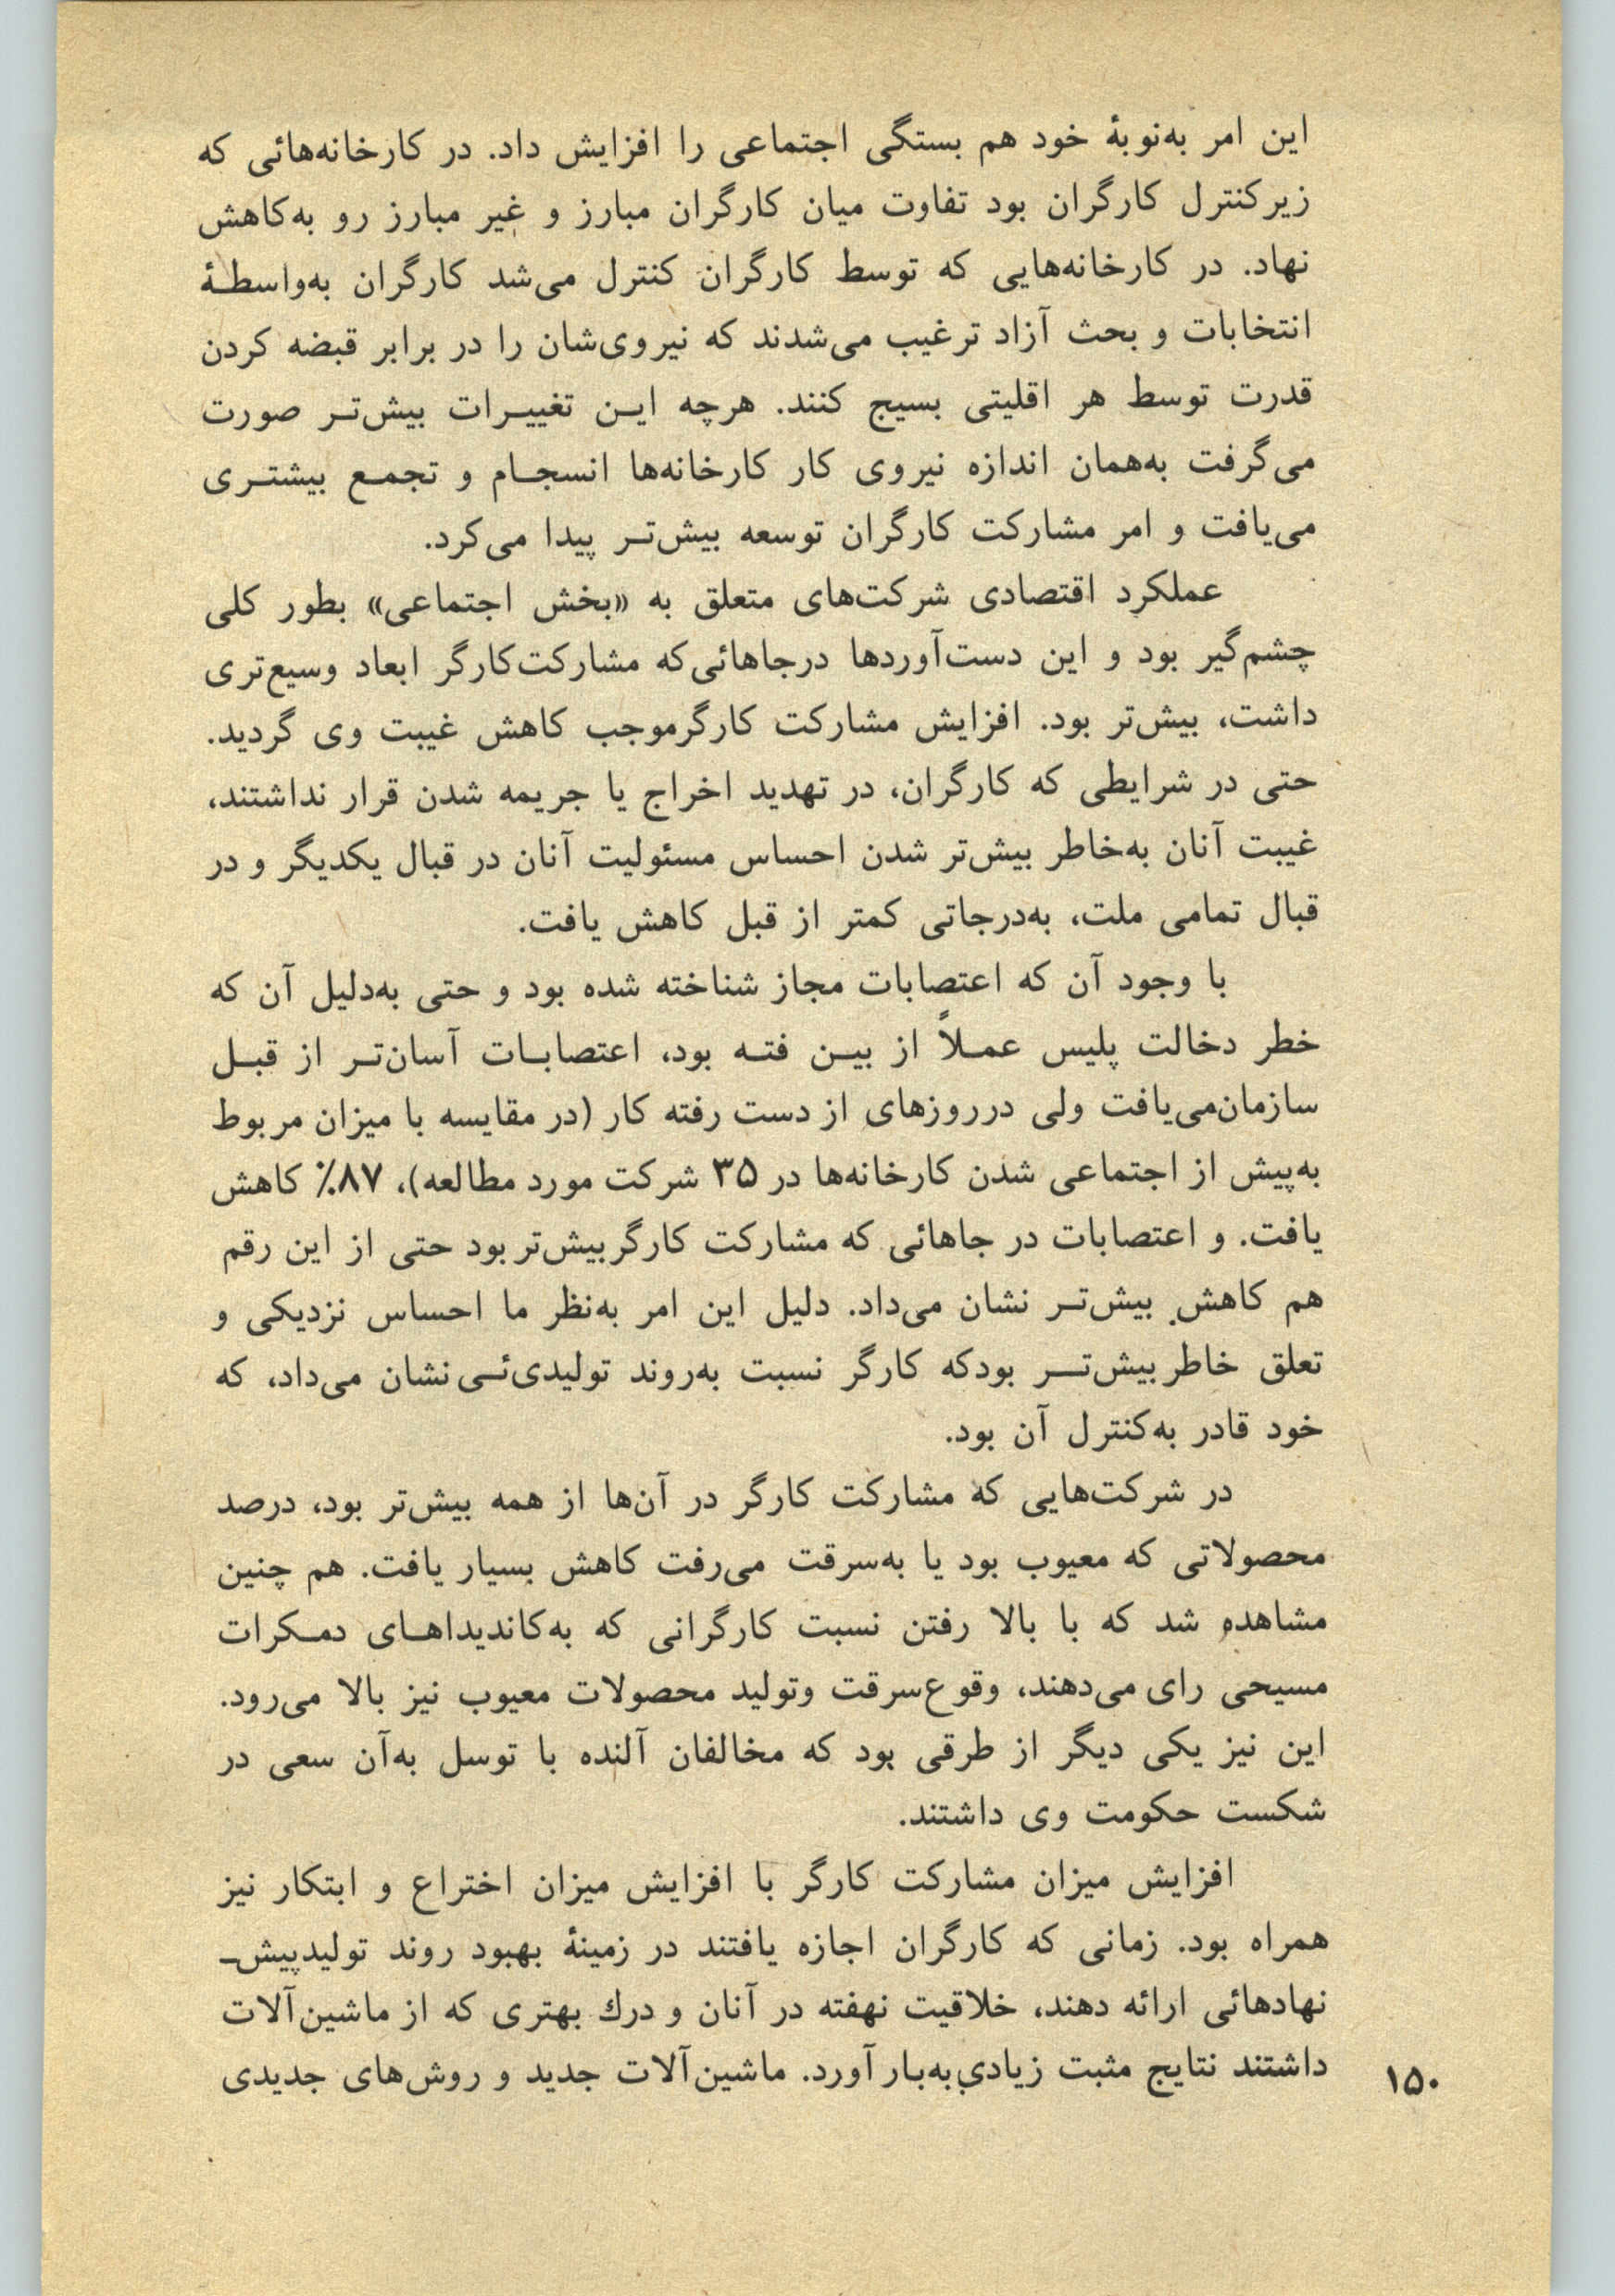 این امر به‌نوبهٔ خود هم بستگی اجتماعی را افزایش داد. در کارخانه‌هائی که
زیرکنترل کارگران بود تفاوت میان کارگران مبارز و غیر مبارز رو به‌کاهش
نهاد. در کارخانه‌هایی که توسط کارگران کنترل می‌شد کارگران به‌واسطـهٔ
انتخابات و بحث آزاد ترغیب می‌شدند که نیروی‌شان را در برابر قبضه کردن
قدرت توسط هر اقلیتی بسیج کنند. هرچه ایـن تغییـرات بیش‌تـر صورت
می‌گرفت به‌همان اندازه نیروی کار کارخانه‌ها انسجـام و تجمـع بیشتـری
می‌یافت و امر مشارکت کارگران توسعه بیش‌تـر پیدا می‌کرد.
عملکرد اقتصادی شرکت‌های متعلق به «بخش اجتماعی» بطور کلی
چشم‌گیر بود و این دست‌آوردها درجاهائی‌که مشارکت‌کارگر ابعاد وسیع‌تری
داشت، بیش‌تر بود. افزایش مشارکت کارگرموجب کاهش غیبت وی گردید.
حتی در شرایطی که کارگران، در تهدید اخراج یا جریمه شدن قرار نداشتند،
غیبت آنان به‌خاطر بیش‌تر شدن احساس مسئولیت آنان در قبال یکدیگر و در
قبال تمامی ملت، به‌درجاتی کمتر از قبل کاهش یافت.
با وجود آن که اعتصابات مجاز شناخته شده بود و حتی به‌دلیل آن که
خطر دخالت پلیس عمـلاً از بیـن فتـه بود، اعتصابـات آسان‌تـر از قبـل
سازمان‌می‌یافت ولی درروزهای از دست رفته کار (در مقایسه با میزان مربوط
به‌پیش از اجتماعی شدن کارخانه‌ها در ۳۵ شرکت مورد مطالعه)، ۸۷٪ کاهش
یافت. و اعتصابات در جاهائی که مشارکت کارگر بیش‌تر بود حتی از این رقم
هم کاهش بیش‌تـر نشان می‌داد. دلیل این امر به‌نظر ما احساس نزدیکی و
تعلق خاطر بیش‌تـــر بودکه کارگر نسبت به‌روند تولیدی‌ئـی نشان می‌داد، که
خود قادر به‌کنترل آن بود.
در شرکت‌هایی که مشارکت کارگر در آن‌ها از همه بیش‌تر بود، درصد
محصولاتی که معیوب بود یا به‌سرقت می‌رفت کاهش بسیار یافت. هم چنین
مشاهده شد که با بالا رفتن نسبت کارگرانی که به‌کاندیداهـای دمـکرات
مسیحی رای می‌دهند، وقوع‌سرقت وتولید محصولات معیوب نیز بالا می‌رود.
این نیز یکی دیگر از طرقی بود که مخالفان آلنده با توسل به‌آن سعی در
شکست حکومت وی داشتند.
افزایش میزان مشارکت کارگر با افزایش میزان اختراع و ابتکار نیز
همراه بود. زمانی که کارگران اجازه یافتند در زمینهٔ بهبود روند تولیدپیش‌ـ
نهادهائی ارائه دهند، خلاقیت نهفته در آنان و درك بهتری که از ماشین‌آلات
داشتند نتایج مثبت زیادی‌به‌بار آورد. ماشین‌آلات جدید و روش‌های جدیدی
۱۵۰